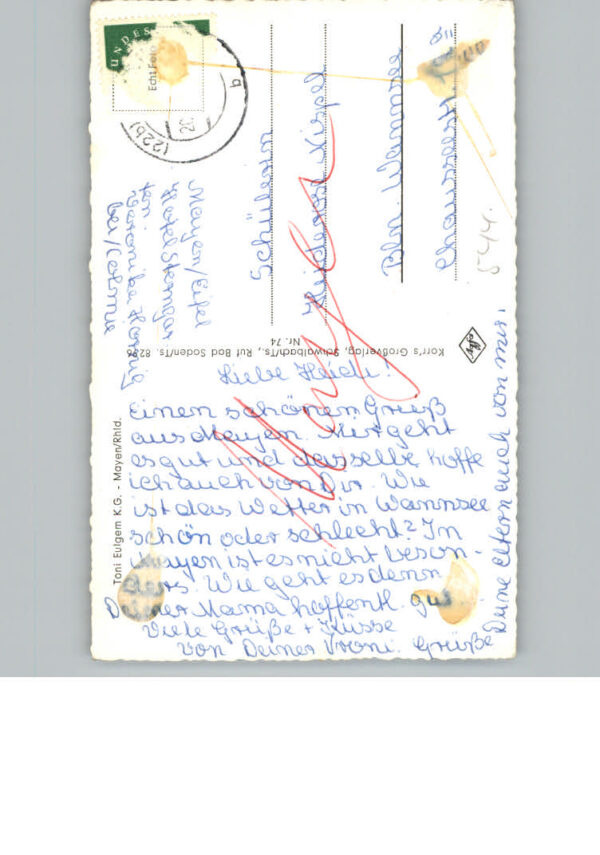 Liebe Heidi!
Einen schönen Gruß
aus Mayen. Mir geht
es gut und dasselbe hoffe
ich auch von Dir. Wie
ist das Wetter in Wannsee
schön oder schlecht? In
Mayen ist es nicht beson-
ders. Wie geht es denn
Deiner Mama hoffentl. gut
Viele Grüße + Küsse
von Deiner Vroni. Grüße
Deine Eltern auch von mir.
Mayen/Eifel
Hotel Sterngar
ten
bei
Schülerin
Bln Wannsee
Chausseestr.
5414.
Mayen
Toni Eulgem K.G. - Mayen/Rhld.
Korr's Großverlag, Schwalbach/Ts., Ruf Bad Soden/Ts. 8296
Nr. 74
UNDES
Echt Foto
(22b)
20.
b